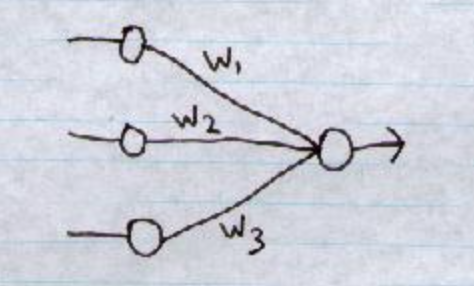 W₁
W₂
W₃